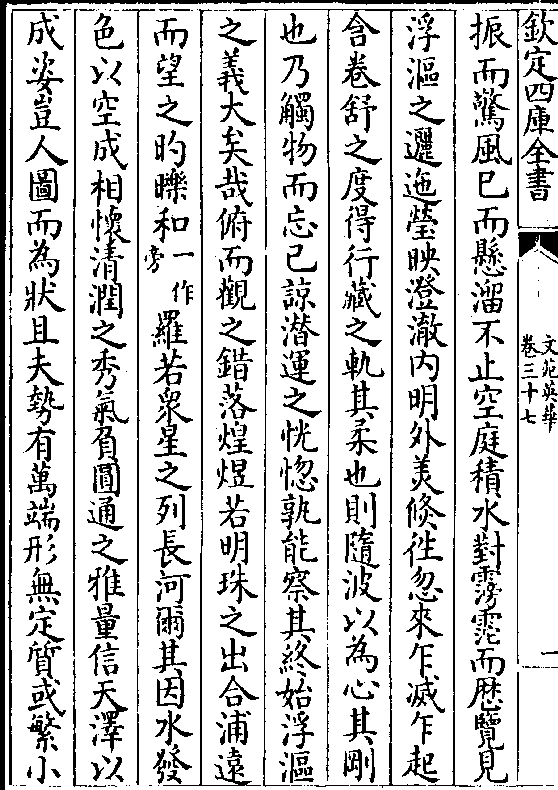 欽定四庫全書
文苑英華
卷三十七
一
振而驚風已而懸溜不止空庭積水對霶霶而歴覽見
浮漚之邐迤瑩映澄澈内明外羙倐徃忽來乍滅乍起
含卷舒之度得行藏之軌其柔也則隨波以為心其剛
也乃觸物而忘己諒潜運之恍惚孰能察其終始浮漚
之義大矣哉俯而觀之錯落煌煜若明珠之出合浦遠
而望之旳皪和一作旁羅若衆星之列長河爾其因水發
色以空成相懷清潤之秀氣負圓通之雅量信天澤以
成姿豈人圖而為狀且夫勢有萬端形無定質或繁小